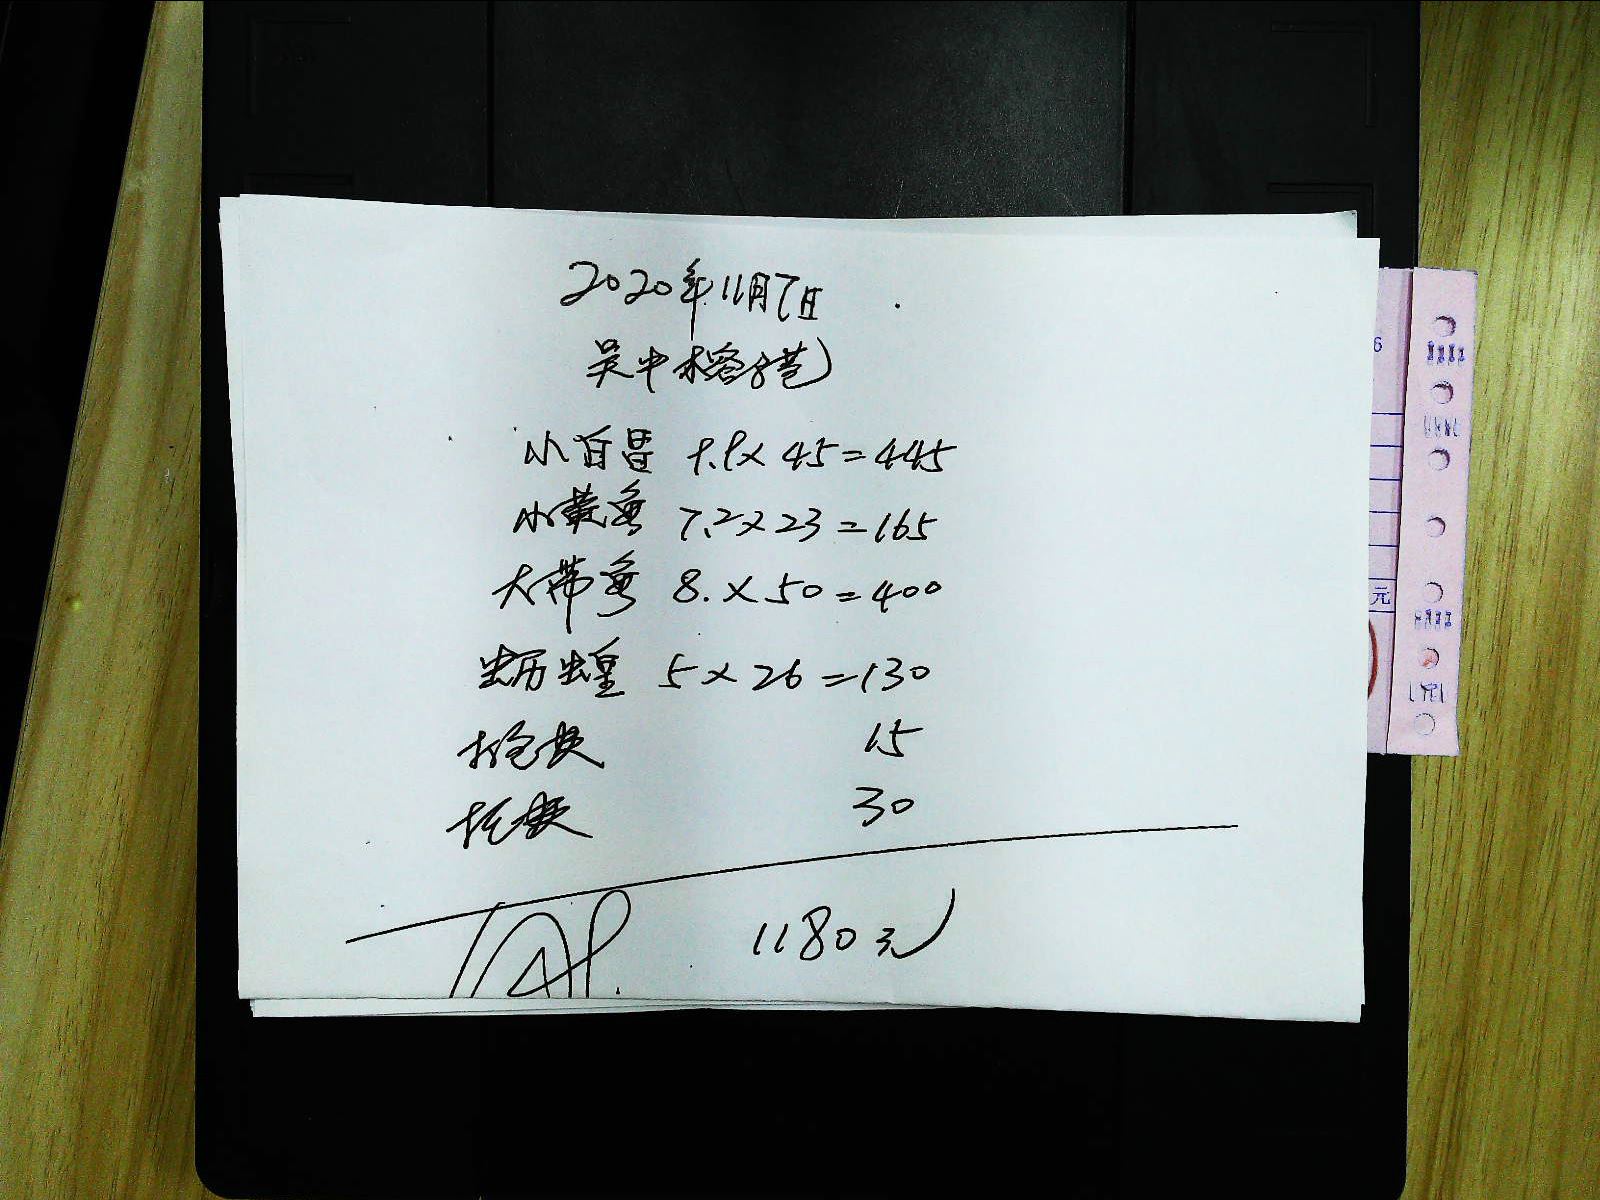 2020年11月7日
吴中木容子巷
小白昌 9.9× 45=445
小黄鱼 7.2×23=165
大带鱼 8.×50=400
5×26=130
15
30
1180元
6
元